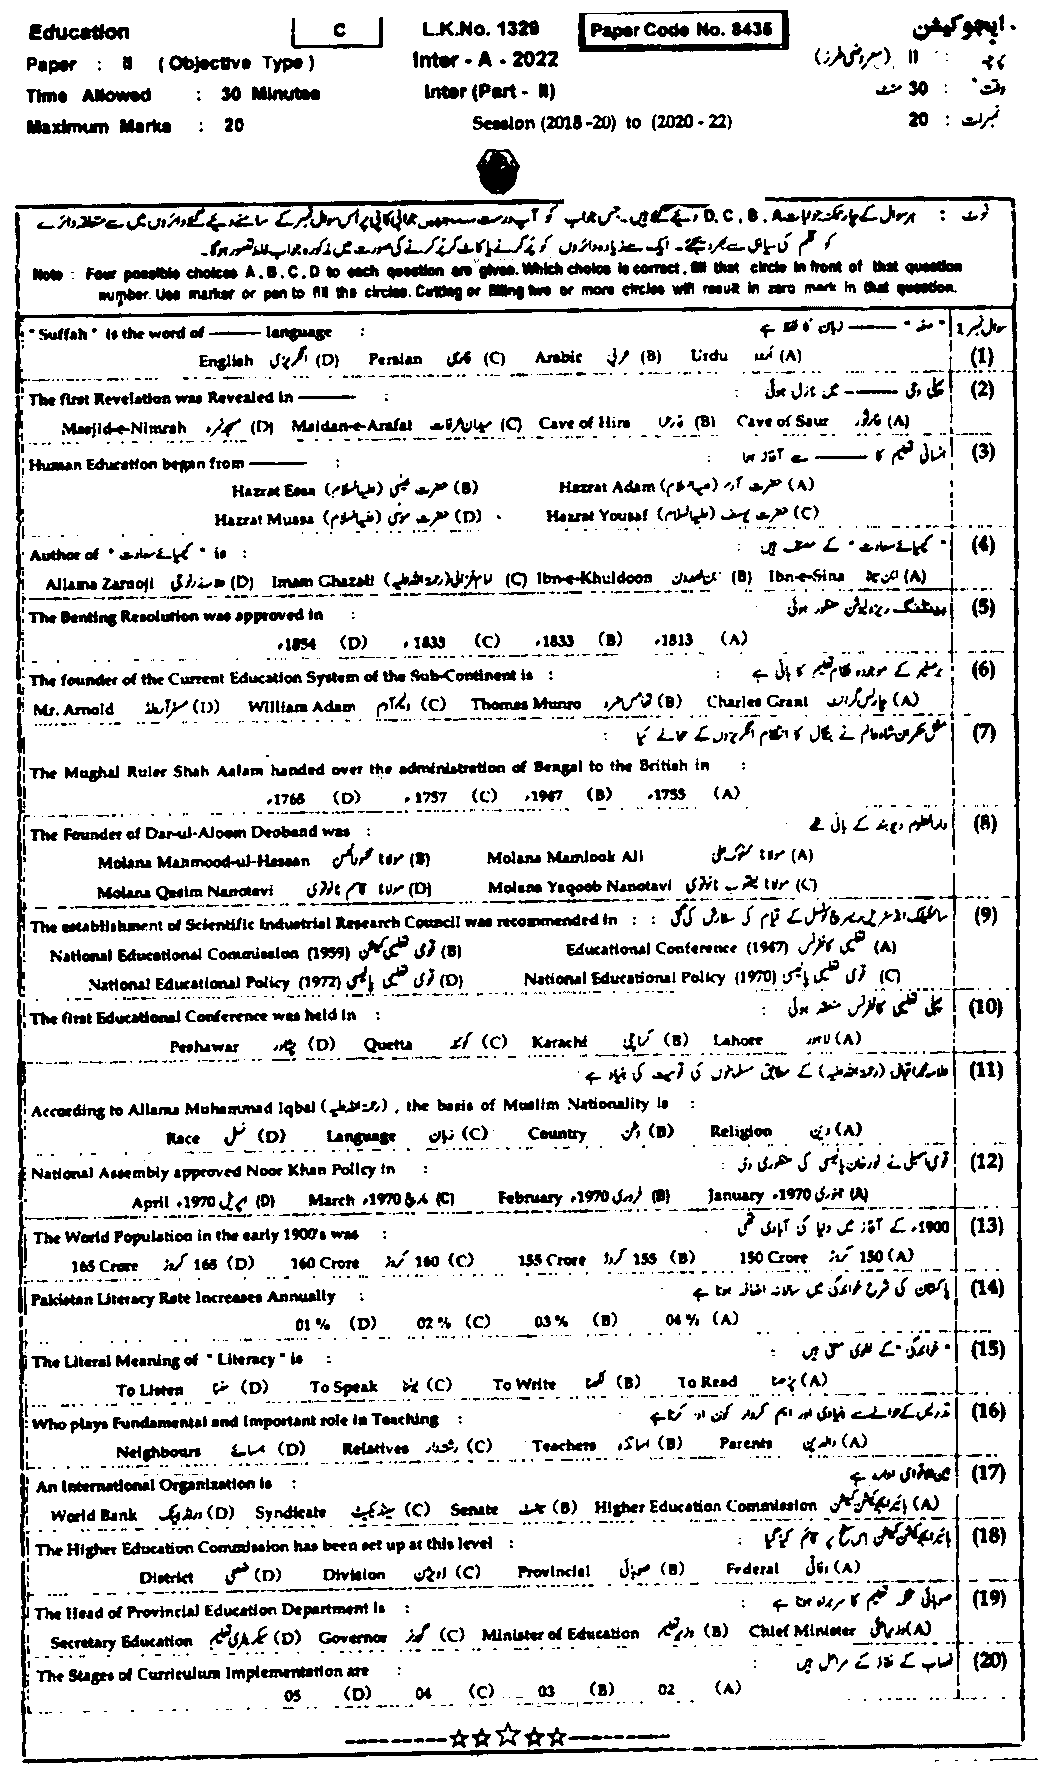 Education C L.K.No. 1329 Paper Code No. 8435 ایجوکیشن
Paper : II (Objective Type) Inter - A - 2022 پرچہ : II (معروضی طرز)
Time Allowed : 30 Minutes Inter (Part - II) وقت : 30 منٹ
Maximum Marks : 20 Session (2018 -20) to (2020 - 22) نمبرات : 20
نوٹ : ہر سوال کے چار ممکنہ جوابات D, C, B, A دیئے گئے ہیں۔ جس جواب کو آپ درست سمجھیں جوابی کاپی پر اُس سوال نمبر کے سامنے دیئے گئے دائروں میں سے متعلقہ دائرے
کو قلم کی سیاہی سے بھر دیجئے۔ ایک سے زیادہ دائروں کو پُر کرنے یا کاٹ کر پُر کرنے کی صورت میں مذکورہ جواب غلط تصور ہو گا۔
Note : Four possible choices A, B, C, D to each question are given. Which choice is correct, fill that circle in front of that question
number. Use marker or pen to fill the circles. Cutting or filling two or more circles will result in zero mark in that question.
سوال نمبر 1
(1) "Suffah" is the word of ——— language : "صفہ" ——— زبان کا لفظ ہے
English انگریزی (D) Persian فارسی (C) Arabic عربی (B) Urdu اُردو (A)
(2) The first Revelation was Revealed in ——— : پہلی وحی ——— میں نازل ہوئی :
Masjid-e-Nimrah مسجد نمرہ (D) Maidan-e-Arafat میدان عرفات (C) Cave of Hira غار حرا (B) Cave of Saur غار ثور (A)
(3) Human Education began from ——— : انسانی تعلیم کا ——— سے آغاز ہوا :
Hazrat Essa حضرت عیسیٰ (علیہ السلام) (B) Hazrat Adam حضرت آدم (علیہ السلام) (A)
Hazrat Mussa حضرت موسیٰ (علیہ السلام) (D) Hazrat Yousaf حضرت یوسف (علیہ السلام) (C)
(4) Author of "کیمیائے سعادت" is : "کیمیائے سعادت" کے مصنف ہیں :
Allama Zarnoji علامہ زرنوجی (D) Imam Ghazali امام غزالی (رحمۃ اللہ علیہ) (C) Ibn-e-Khuldoon ابن خلدون (B) Ibn-e-Sina ابن سینا (A)
(5) The Benting Resolution was approved in : بینٹنگ ریزولیوشن منظور ہوئی
1854ء (D) 1833ء (C) 1833ء (B) 1813ء (A)
(6) The founder of the Current Education System of the Sub-Continent is : برصغیر کے موجودہ نظام تعلیم کا بانی ہے :
Mr. Arnold مسٹر آرنلڈ (D) William Adam ولیم آدم (C) Thomas Munro تھامس منرو (B) Charles Grant چارلس گرانٹ (A)
(7) مغل حکمران شاہ عالم نے بنگال کا انتظام انگریزوں کے حوالے کیا :
The Mughal Ruler Shah Aalam handed over the administration of Bengal to the British in :
1765ء (D) 1757ء (C) 1947ء (B) 1755ء (A)
(8) The Founder of Dar-ul-Aloom Deoband was : دارالعلوم دیوبند کے بانی تھے
Molana Mahmood-ul-Hassan مولانا محمود الحسن (B) Molana Mamlook Ali مولانا مملوک علی (A)
Molana Qasim Nanotavi مولانا قاسم نانوتوی (D) Molana Yaqoob Nanotavi مولانا یعقوب نانوتوی (C)
(9) The establishment of Scientific Industrial Research Council was recommended in : سائنٹیفک انڈسٹریل ریسرچ کونسل کے قیام کی سفارش کی گئی :
National Educational Commission (1959) قومی تعلیمی کمیشن (B) Educational Conference (1947) تعلیمی کانفرنس (A)
National Educational Policy (1972) قومی تعلیمی پالیسی (D) National Educational Policy (1970) قومی تعلیمی پالیسی (C)
(10) The first Educational Conference was held in : پہلی تعلیمی کانفرنس منعقد ہوئی :
Peshawar پشاور (D) Quetta کوئٹہ (C) Karachi کراچی (B) Lahore لاہور (A)
(11) علامہ محمد اقبال (رحمۃ اللہ علیہ) کے مطابق مسلمانوں کی قومیت کی بنیاد ہے :
According to Allama Muhammad Iqbal (رحمۃ اللہ علیہ), the basis of Muslim Nationality is :
Race نسل (D) Language زبان (C) Country وطن (B) Religion دین (A)
(12) National Assembly approved Noor Khan Policy in : قومی اسمبلی نے نور خان پالیسی کی منظوری دی :
April 1970ء اپریل (D) March 1970ء مارچ (C) February 1970ء فروری (B) January 1970ء جنوری (A)
(13) The World Population in the early 1900's was : 1900ء کے آغاز میں دنیا کی آبادی تھی
165 Crore 165 کروڑ (D) 160 Crore 160 کروڑ (C) 155 Crore 155 کروڑ (B) 150 Crore 150 کروڑ (A)
(14) Pakistan Literacy Rate Increases Annually : پاکستان کی شرح خواندگی میں سالانہ اضافہ ہوتا ہے :
01 % (D) 02 % (C) 03 % (B) 04 % (A)
(15) The Literal Meaning of "Literacy" is : "خواندگی" کے لغوی معنی ہیں :
To Listen سننا (D) To Speak بولنا (C) To Write لکھنا (B) To Read پڑھنا (A)
(16) Who plays Fundamental and Important role in Teaching : تدریس کے حوالے سے بنیادی اور اہم کردار کون ادا کرتا ہے
Neighbours ہمسائے (D) Relatives رشتہ دار (C) Teachers اساتذہ (B) Parents والدین (A)
(17) An International Organization is : بین الاقوامی ادارہ ہے
World Bank ورلڈ بینک (D) Syndicate سینڈیکیٹ (C) Senate سینٹ (B) Higher Education Commission ہائر ایجوکیشن کمیشن (A)
(18) The Higher Education Commission has been set up at this level : ہائر ایجوکیشن کمیشن اس سطح پر قائم کیا گیا :
District ضلعی (D) Division ڈویژن (C) Provincial صوبائی (B) Federal وفاقی (A)
(19) The Head of Provincial Education Department is : صوبائی محکمہ تعلیم کا سربراہ ہوتا ہے :
Secretary Education سیکرٹری تعلیم (D) Governor گورنر (C) Minister of Education وزیر تعلیم (B) Chief Minister وزیر اعلیٰ (A)
(20) The Stages of Curriculum Implementation are : نصاب کے نفاذ کے مراحل ہیں :
05 (D) 04 (C) 03 (B) 02 (A)